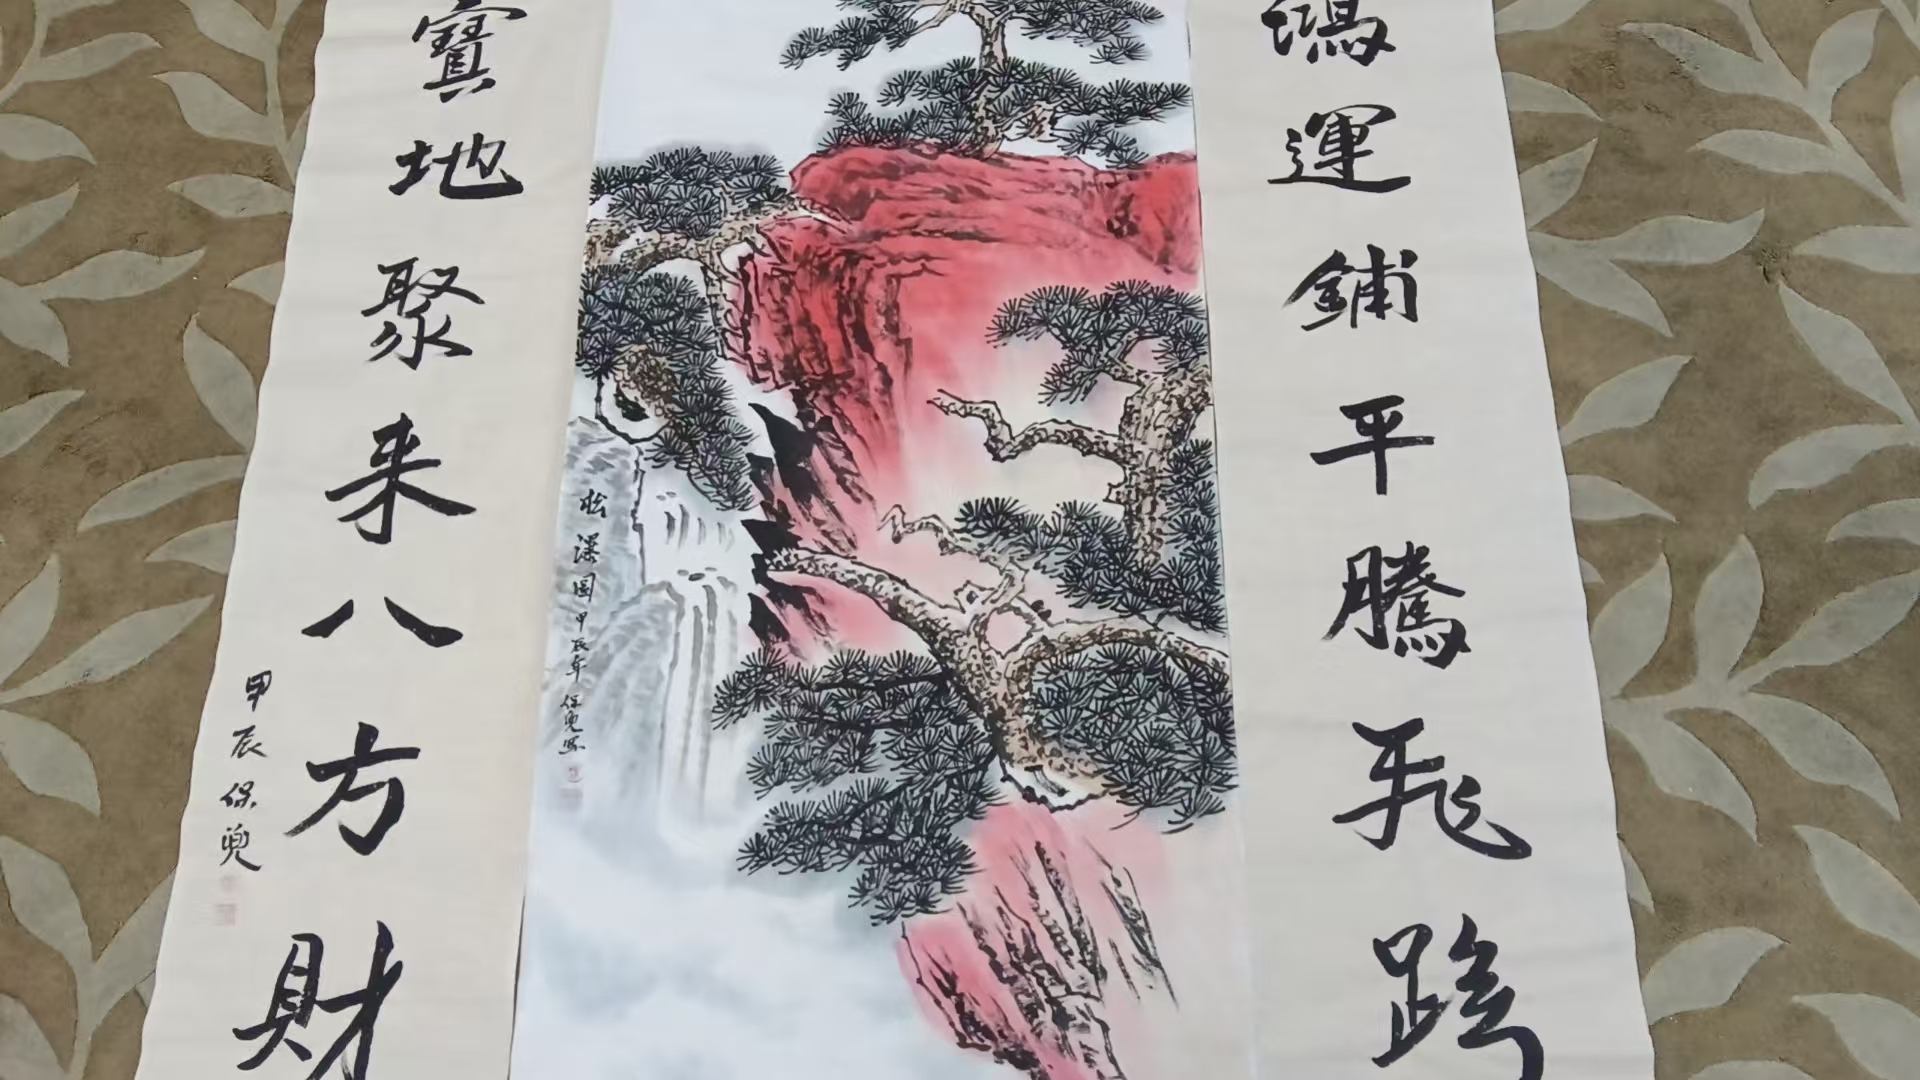 鴻運鋪平騰飛路
寶地聚来八方財
甲辰保
松瀑图甲辰年保